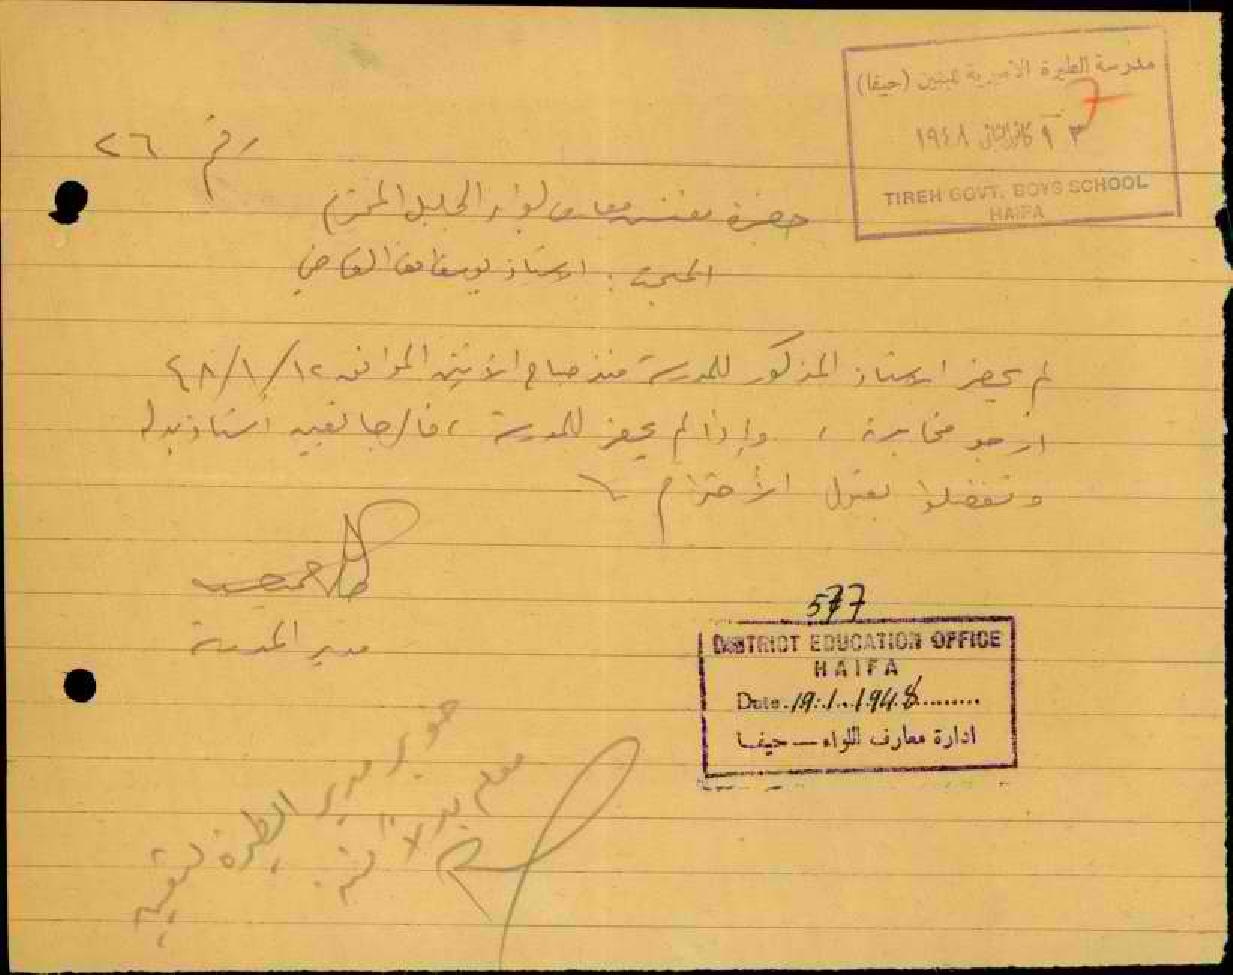 مدرسة الطيرة الاميرية للبنين (حيفا)
٧
١٣ كانون الثاني ١٩٤٨
TIREH GOVT. BOYS SCHOOL
HAIFA
رقم ٢٦
حضرة مفتش معارف لواء الجليل المحترم
المبحث : الاستاذ يوسف القاضي
لم يحضر الاستاذ المذكور للمدرسة منذ صباح الاثنين الموافق ١٢/١/٤٨
ارجو مخابرته ، وإذا لم يحضر للمدرسة ، فالرجا تعيين استاذ بدله
وتفضلوا بقبول الاحترام
مدير المدرسة
577
DISTRICT EDUCATION OFFICE
HAIFA
Date. 19.1.1948
ادارة معارف اللواء — حيفا
مدير الطيرة لتعيين
معلم بدلاً منه